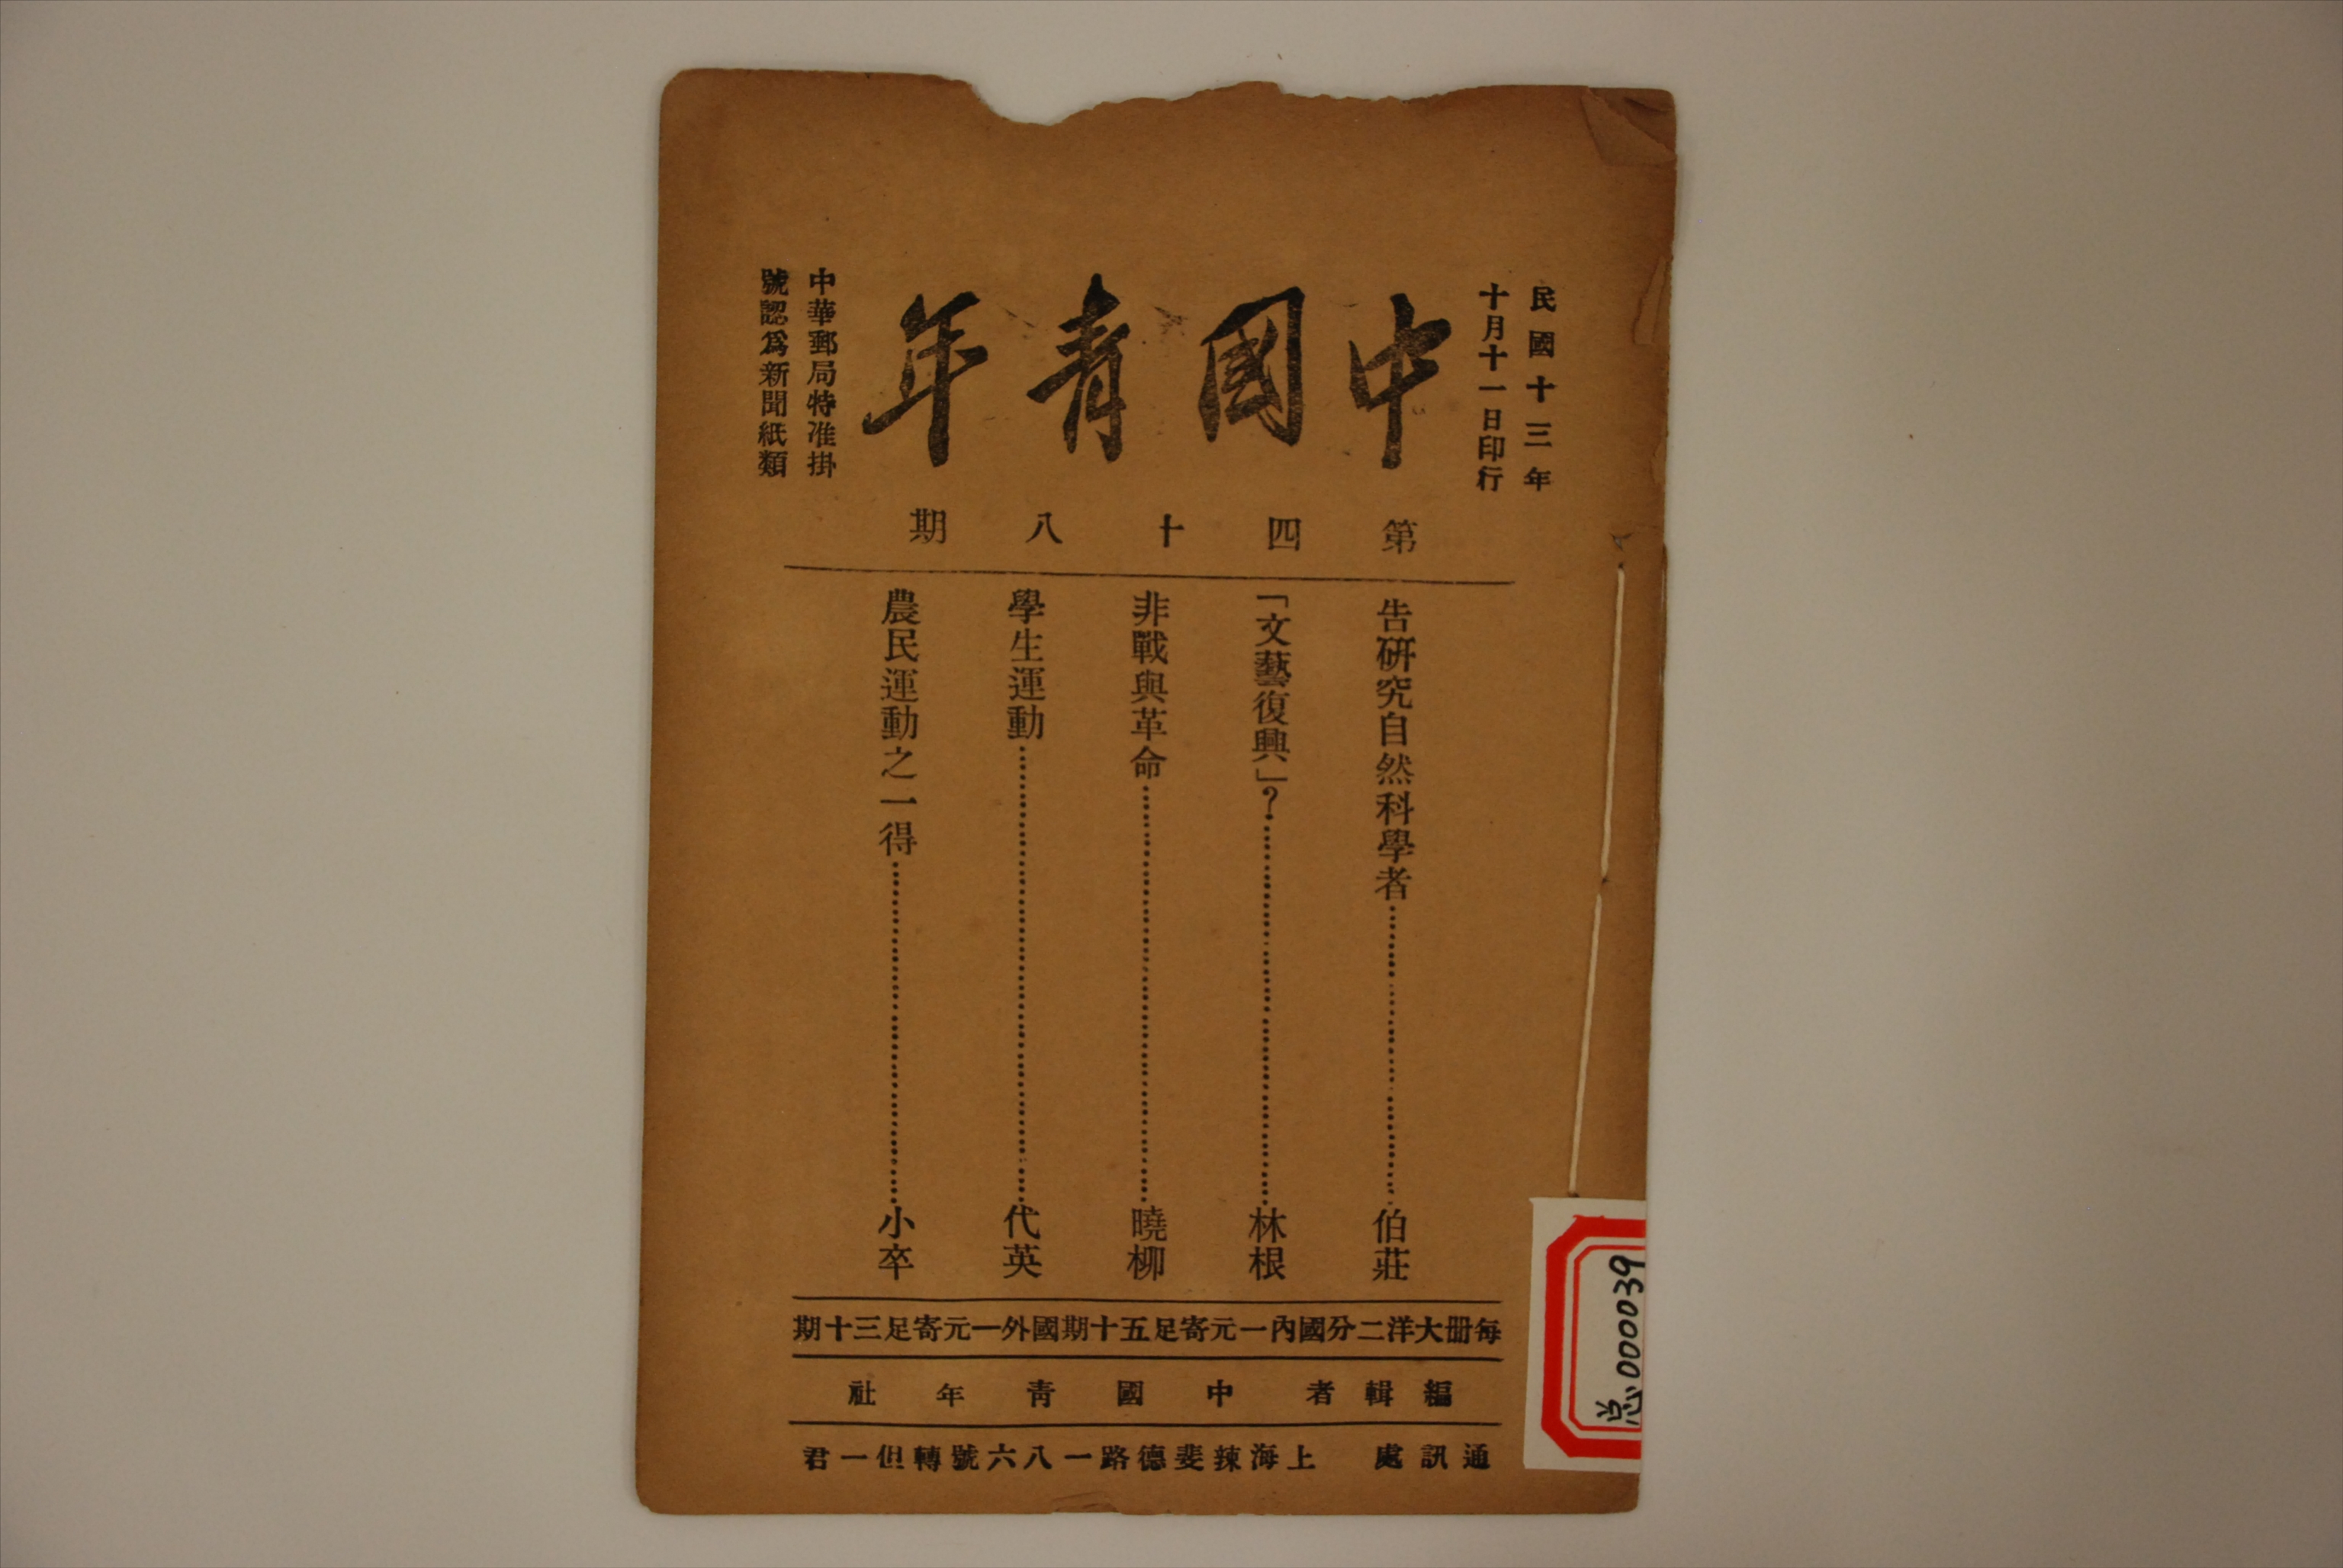 民國十三年
十月十一日印行
中國青年
中華郵局特准掛
號認爲新聞紙類
第四十八期
告研究自然科學者………伯莊
「文藝復興」？………林根
非戰與革命………曉柳
學生運動………代英
農民運動之一得………小卒
每册大洋二分國內一元寄足五十期國外一元寄足三十期
編輯者 中國青年社
通訊處 上海辣斐德路一八六號轉但一君
总0000039